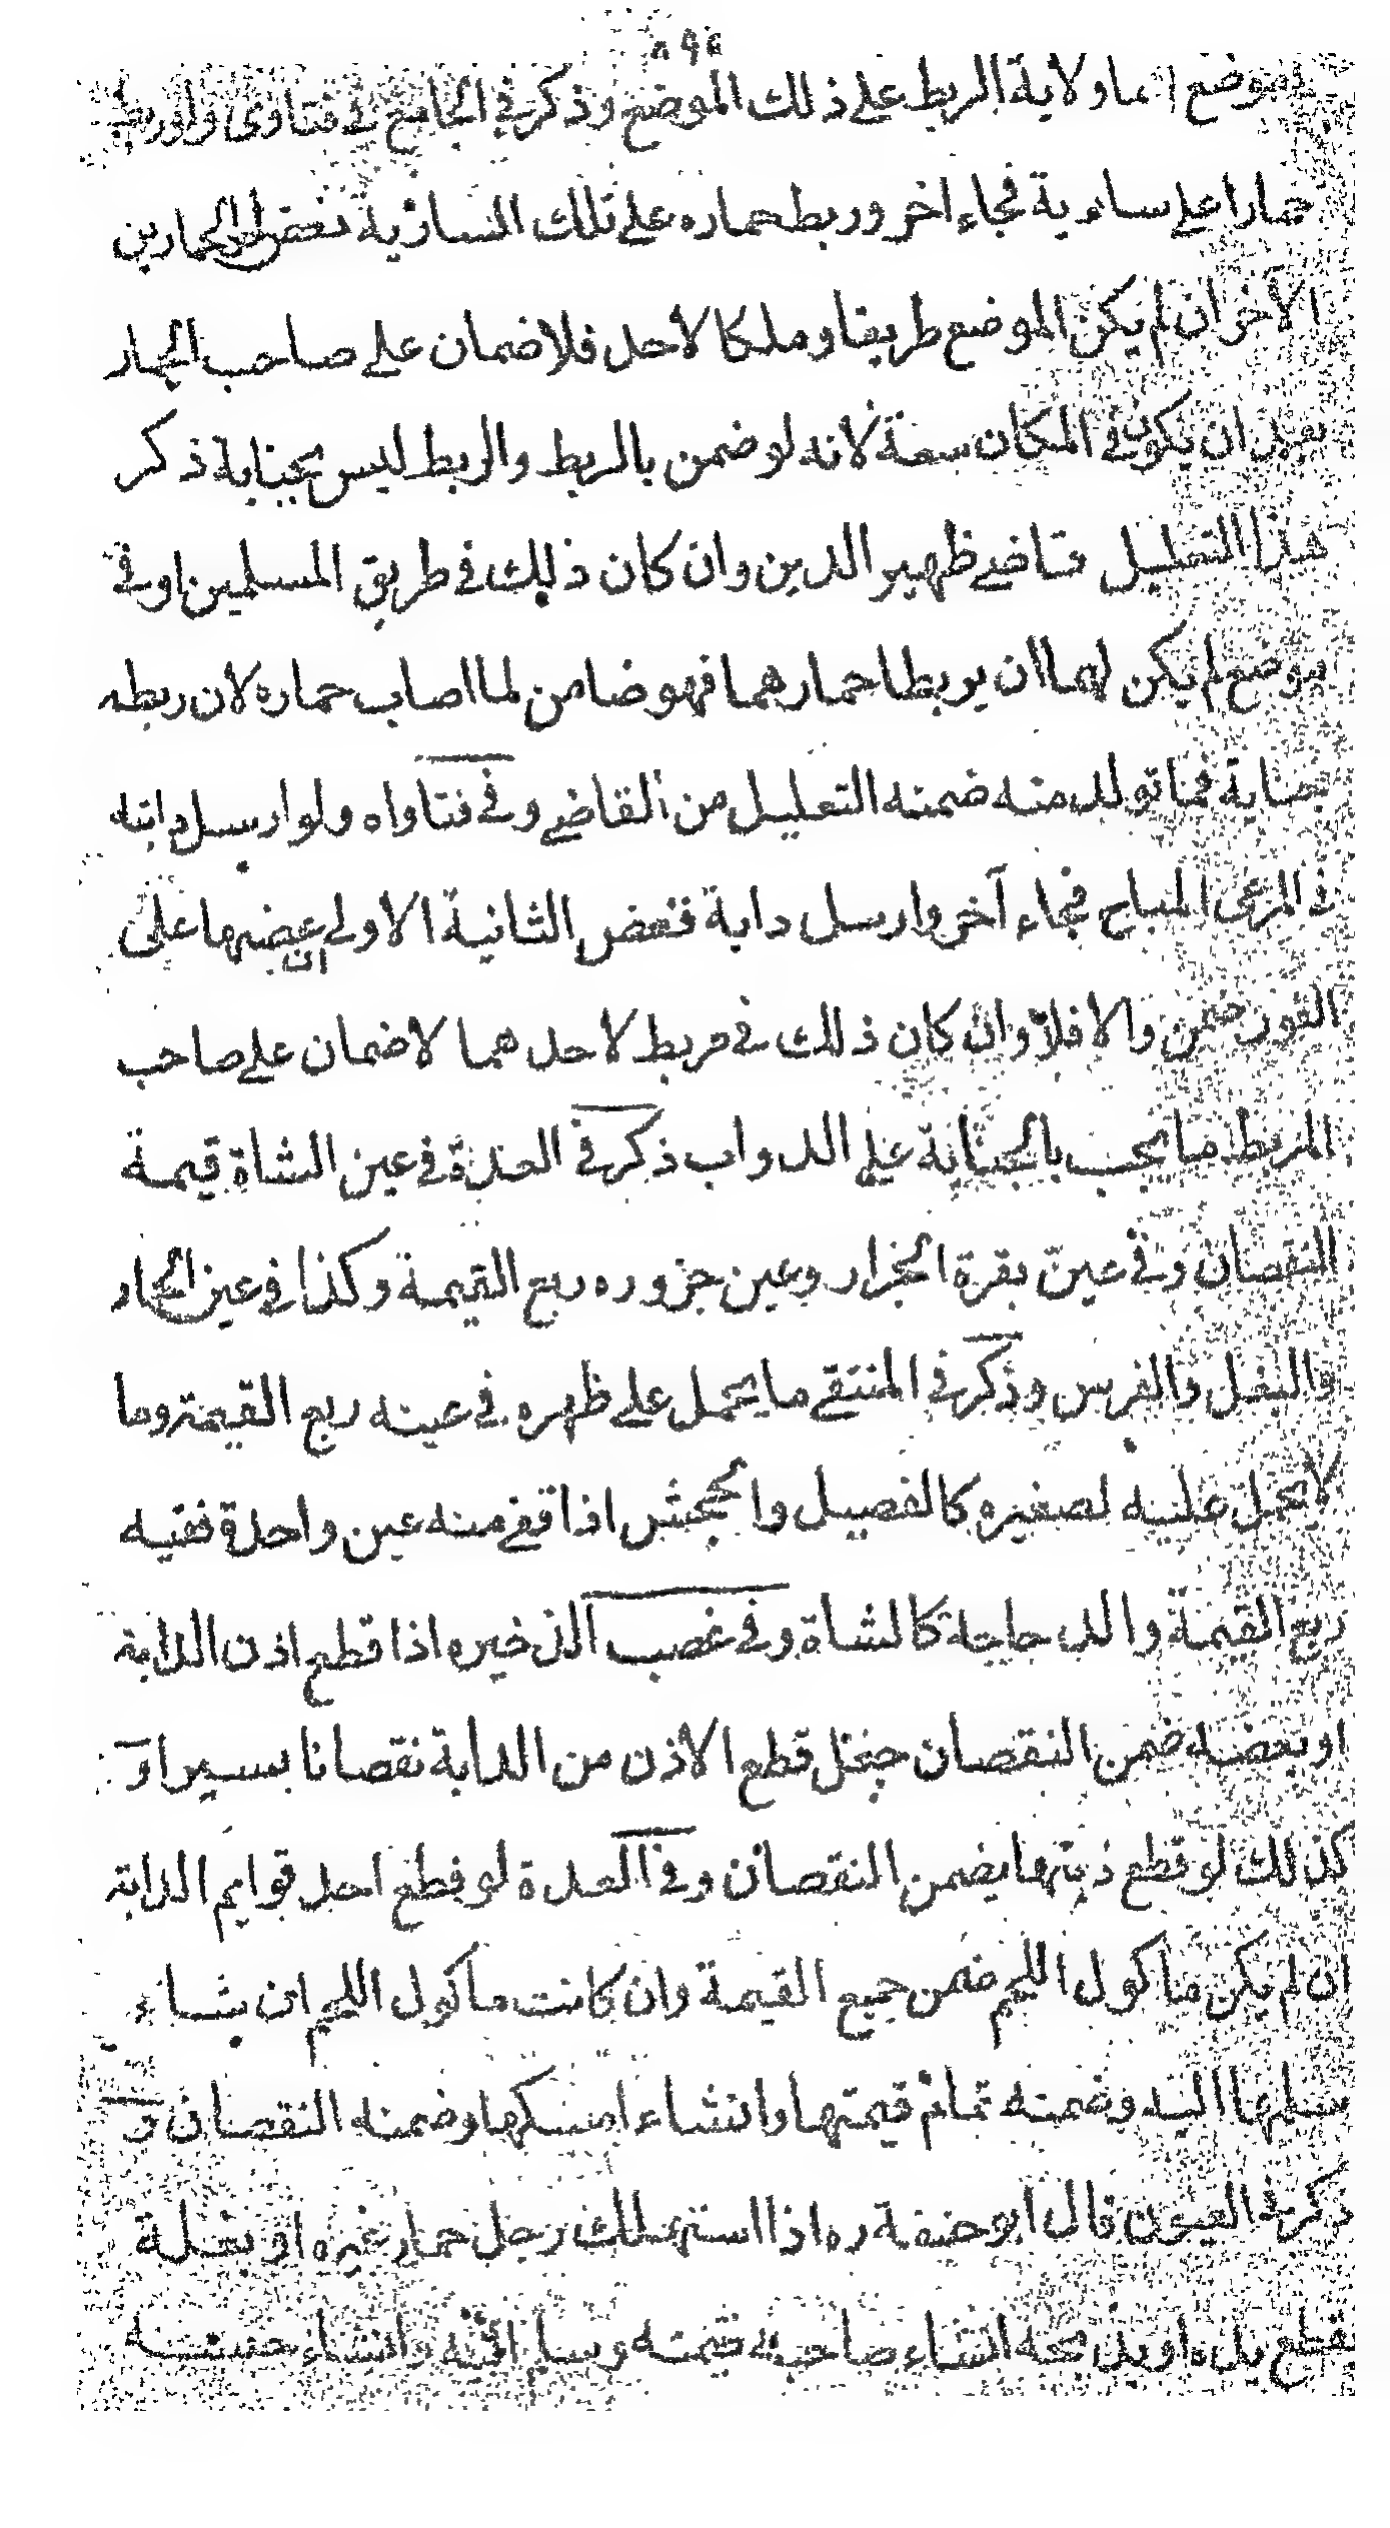 موضع لهما ولاية الربط على ذلك الموضع وذكر في الجامع في فتاوى ولو ربط
حمارا على سارية فجاء اخر وربط حماره على تلك السارية فعض احد الحمارين
الاخر ان لم يكن الموضع طريقا و ملكا لاحد فلا ضمان على صاحب الحمار
بعد ان يكون في المكان سعة لانه لو ضمن بالربط والربط ليس بجناية ذكر
هذا التعليل قاضي ظهير الدين وان كان ذلك في طريق المسلمين او في
موضع لم يكن لهما ان يربطا حمارهما فهو ضامن لما اصاب حماره لان ربطه
جناية فما تولد منه ضمنه التعليل من القاضي وفي فتاواه ولو ارسل دابته
في المرعى المباح فجاء آخر وارسل دابة فعض الثانية الاولى ان عضها على
الفور ضمن والا فلا وان كان ذلك في مربط لاحد هما لا ضمان على صاحب
المربط ما يجب بالجناية على الدواب ذكر في العدة في عين الشاة قيمة
النقصان وفي عين بقرة الجزار وعين جزوره ربع القيمة وكذا في عين الحمار
والبغل والفرس وذكر في المنتقى ما يحمل على ظهره في عينه ربع القيمة وما
لا يحمل عليه لصغيره كالفصيل والجحش اذا قفي منه عين واحدة ففيه
ربع القيمة والدجاجة كالشاة وفي غصب الذخيره اذا قطع اذن الدابة
او بعضه ضمن النقصان جعل قطع الاذن من الدابة نقصانا يسيرا و
كذلك لو قطع ذنبها يضمن النقصان وفي العدة لو قطع احد قوايم الدابة
ان لم يكن ماكول اللحم ضمن جميع القيمة وان كانت ماكول اللحم ان شاء
سلمها اليه وضمنه تمام قيمتها وانشاء امسكها وضمنه النقصان و
ذكر في العيون قال ابو حنيفة ره اذا استهلك رجل حمار غيره او بغلة
بقطع يده او بذبحه انشاء صاحبه ضمنه وسلم اليه وانشاء حبسه